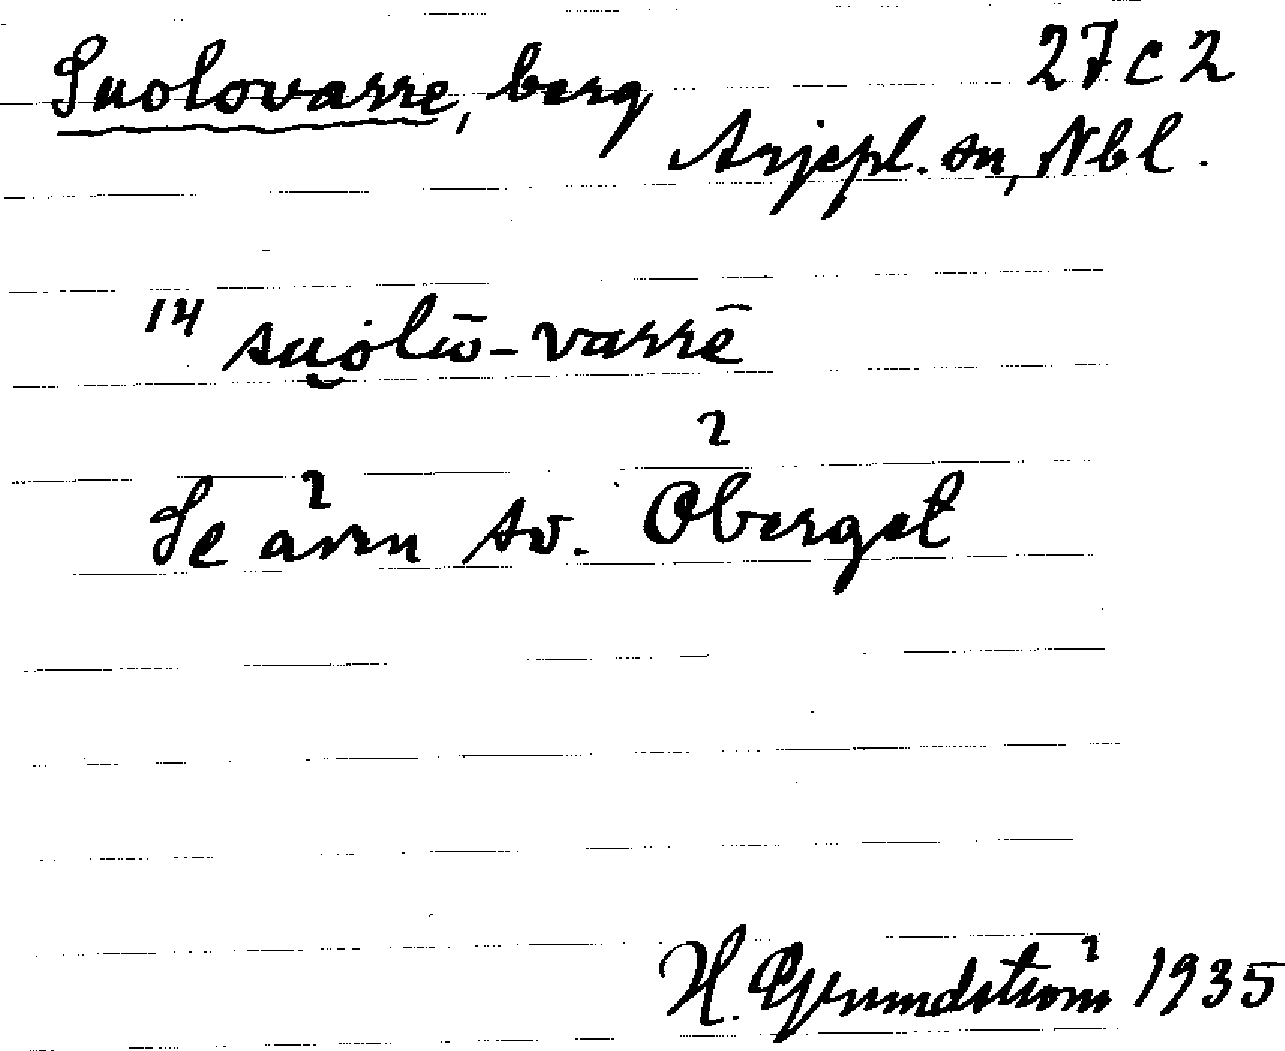 Suolovarre, berg 27 c 2
Arjepl. sn, Nbl.
14 su̮ȯlū-varrē
Se även sv. Öberget
H. Grundström 1935